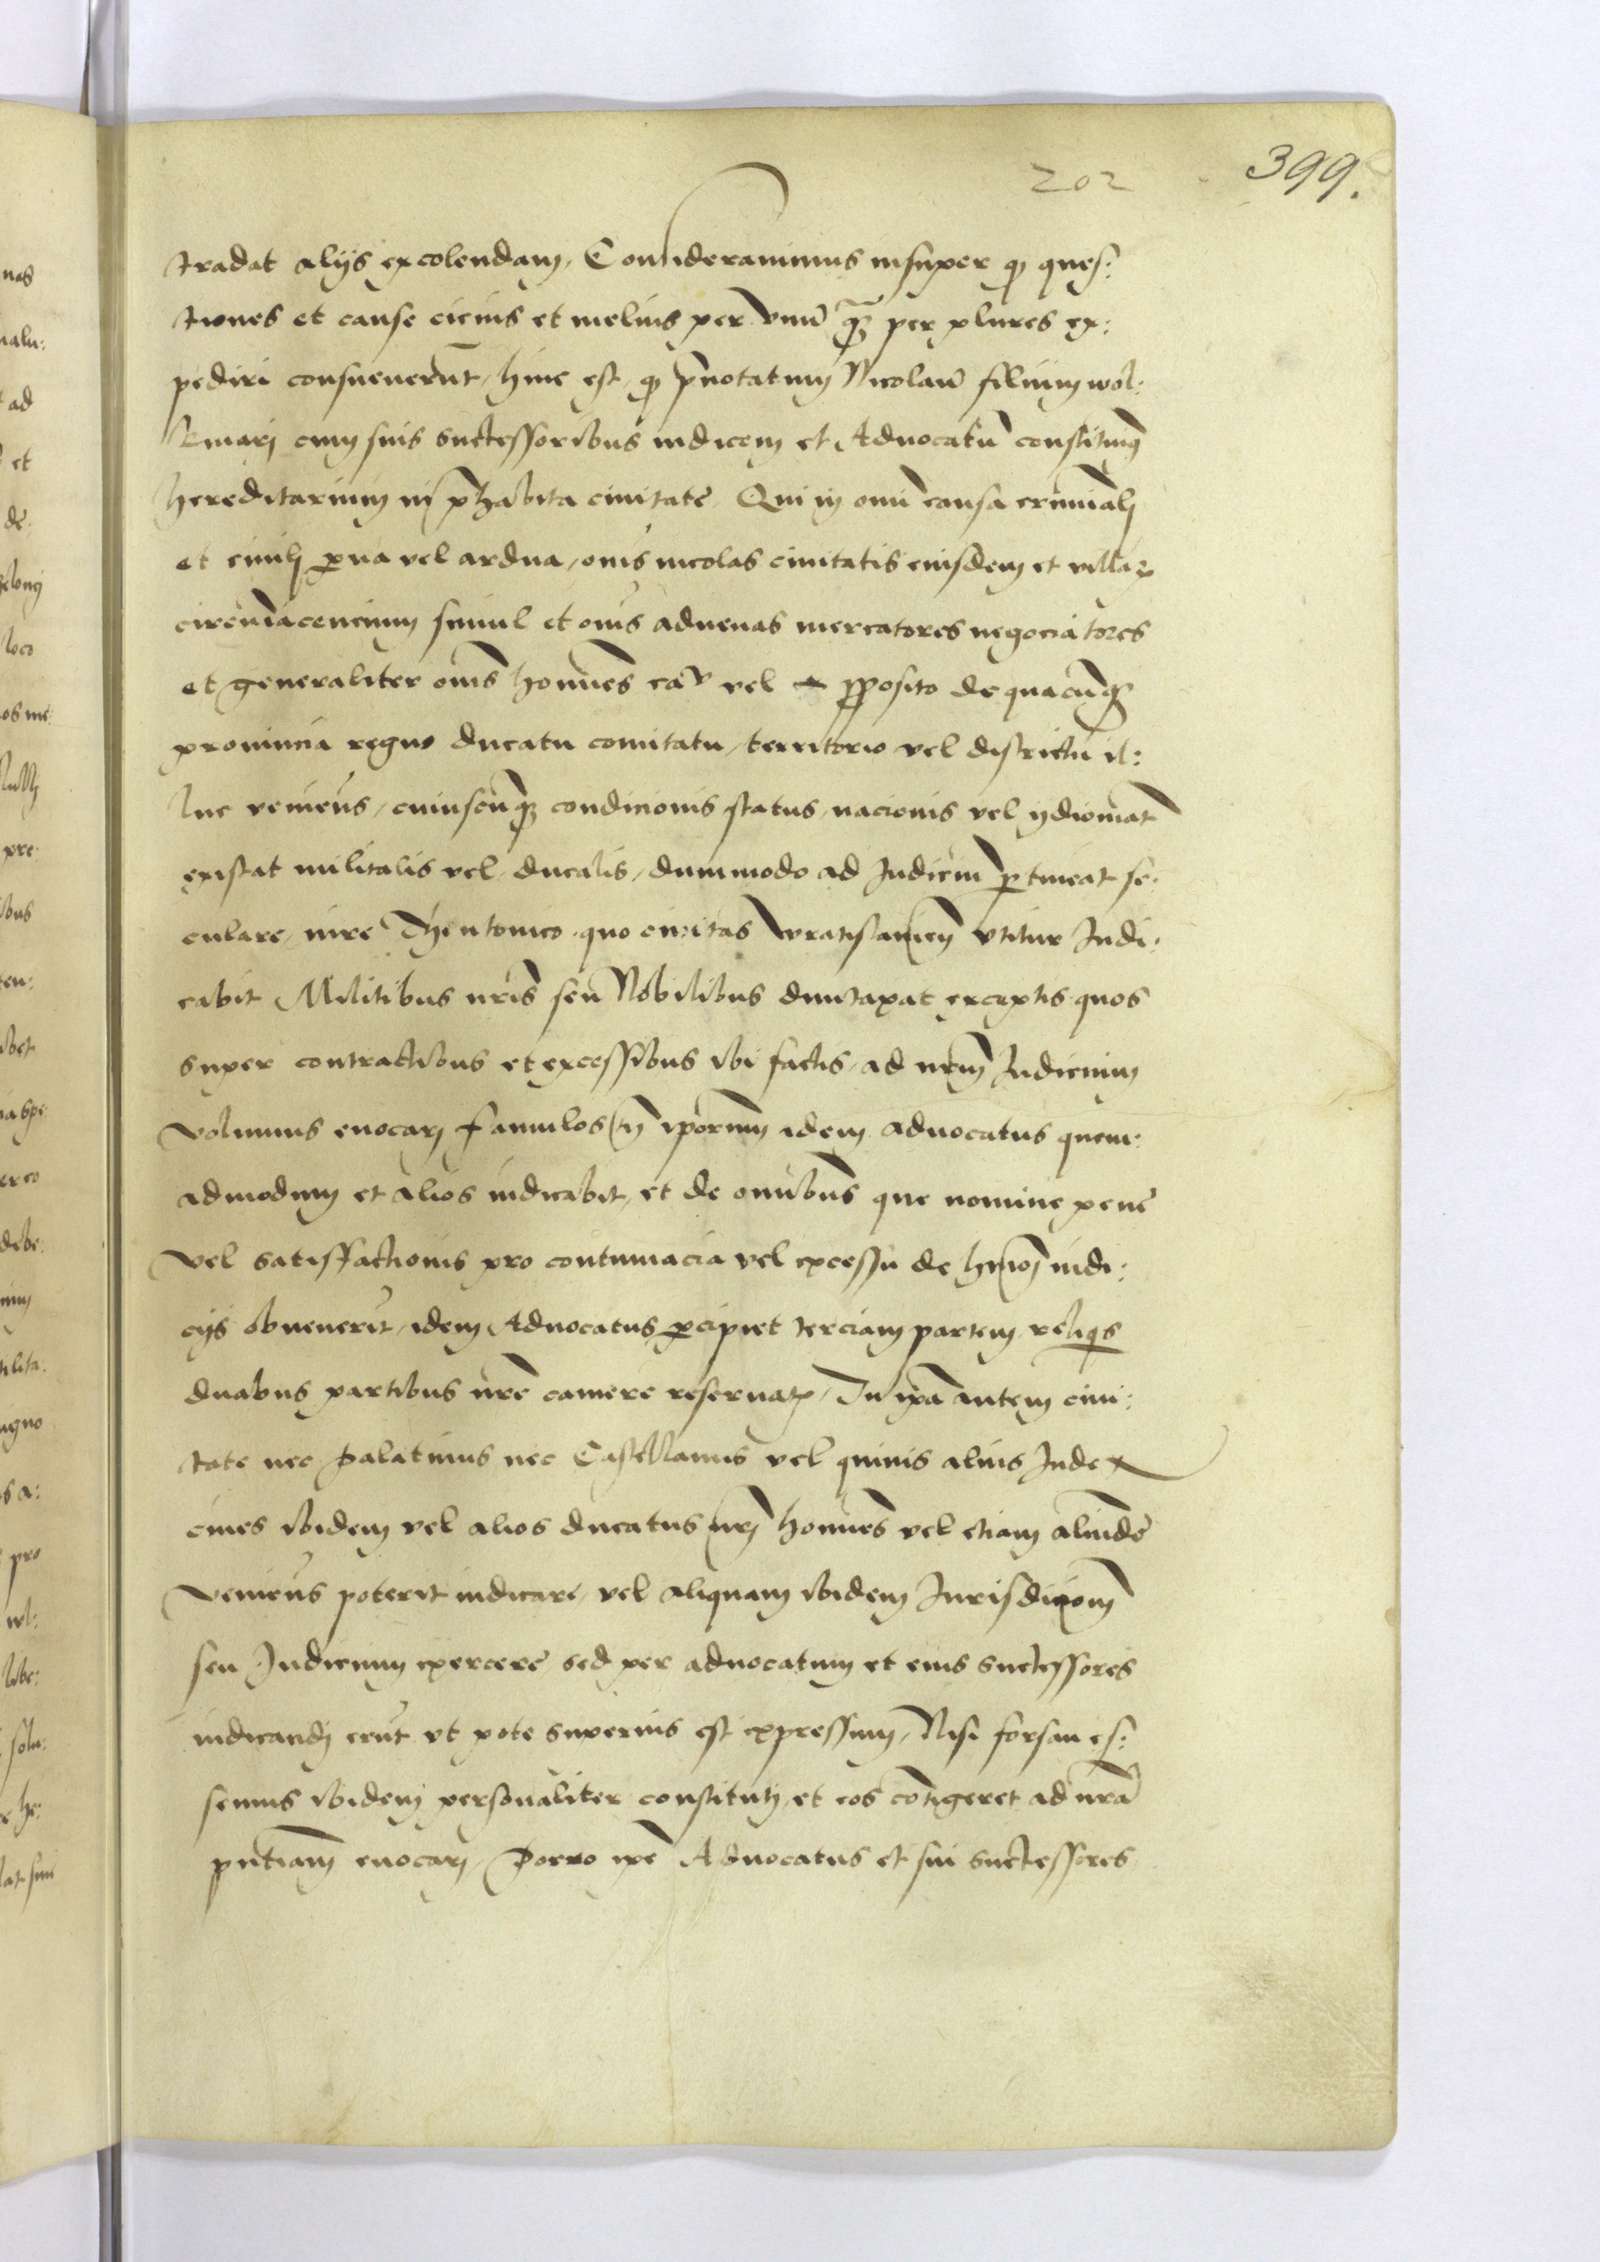 202 399.
tradat alijs excolendam, Considerauimus insuper qp ques:
tiones et cause cicius et melius per vnũ q̃ꝫ per plures ex:
pediri consueuerũt, hinc est, qp p̃notatum Nicolaũ filium wol:
kmarj cum suis successoribus iudicem et Aduocatũ constituimꝰ
hereditarium in p̃habita ciuitate Qui in om̃i causa crimĩalj
et ciuilj parua vel ardua, om̃s incolas ciuitatis eiusdem et villaꝝ
circũiacencium simul et om̃s aduenas mercatores negociatores
et generaliter om̃s homĩes casu vel ex pposito de quacũqꝫ
prouincia regno ducatu comitatu, territorio vel districtu il:
luc veniẽs, cuiuscũqꝫ condicionis status, nacionis vel ydiomat̃
existat militalis vel, ducalis, dummodo ad Judiciũ p̱tineat se:
culare, iure Theutonico quo ciuitas wratislauieñ vtitur Judi:
cabit Militibus nr̃is seu Nobilibus dumtaxat exceptis quos
super contractibus et excessibus ibi factis, ad nr̃m Judicium
volumus euocarj famulos tñ ip̃orum idem aduocatus quem:
admodum et alios iudicabit, et de omnibus que nomine pene
vel satisfactionis pro contumacia vel excessu de hmõj iudi:
cijs obuenerit, idem Aduocatus p̱cipiet terciam partem reliqis
duabus partibus nr̃e camere reseruatꝭ, In ip̃a autem ciui:
tate nec palatinus nec Castellanus vel quiuis alius Judex
ciues ibidem vel alios ducatus nr̃j homĩes vel etiam aliũde
veniẽs poterit iudicare, vel aliquam ibidem Jurisdic̃om̃
seu Judicium exercere sed per aduocatum et eius successores
iudicandj erũt vt pote superius est expressum, Nisi forsan es:
semus ibidem personaliter constitutj, et eos cõtigeret ad nr̃ã
pñtiam euocarj, Porro ip̃e Aduocatus et sui successores